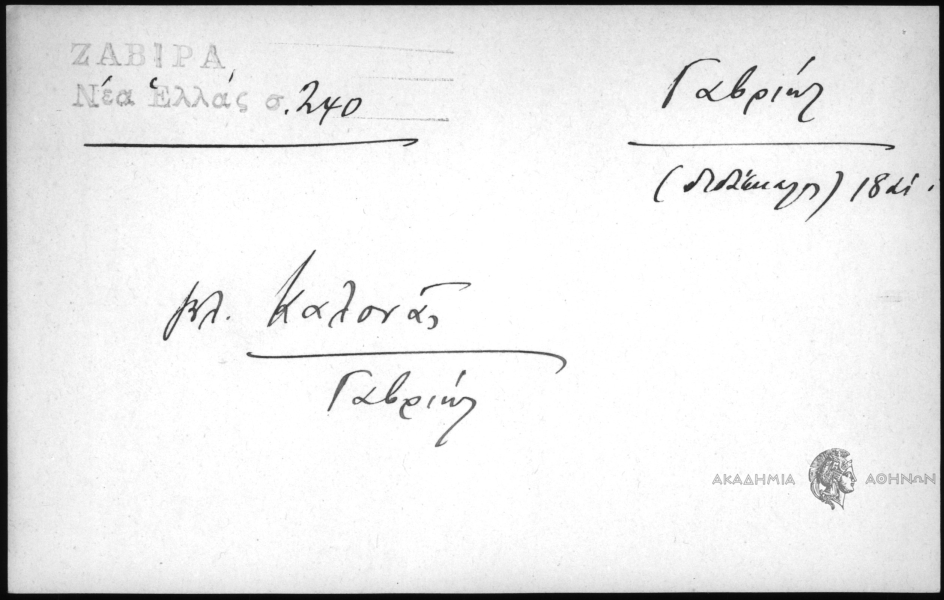 ΖΑΒΙΡΑ
Νέα Ἑλλάς σ. 240
Γαβριήλ
(διδάσκαλος) 18 αἰ.
βλ. Καλονᾶς
Γαβριήλ
ΑΚΑΔΗΜΙΑ ΑΘΗΝΩΝ